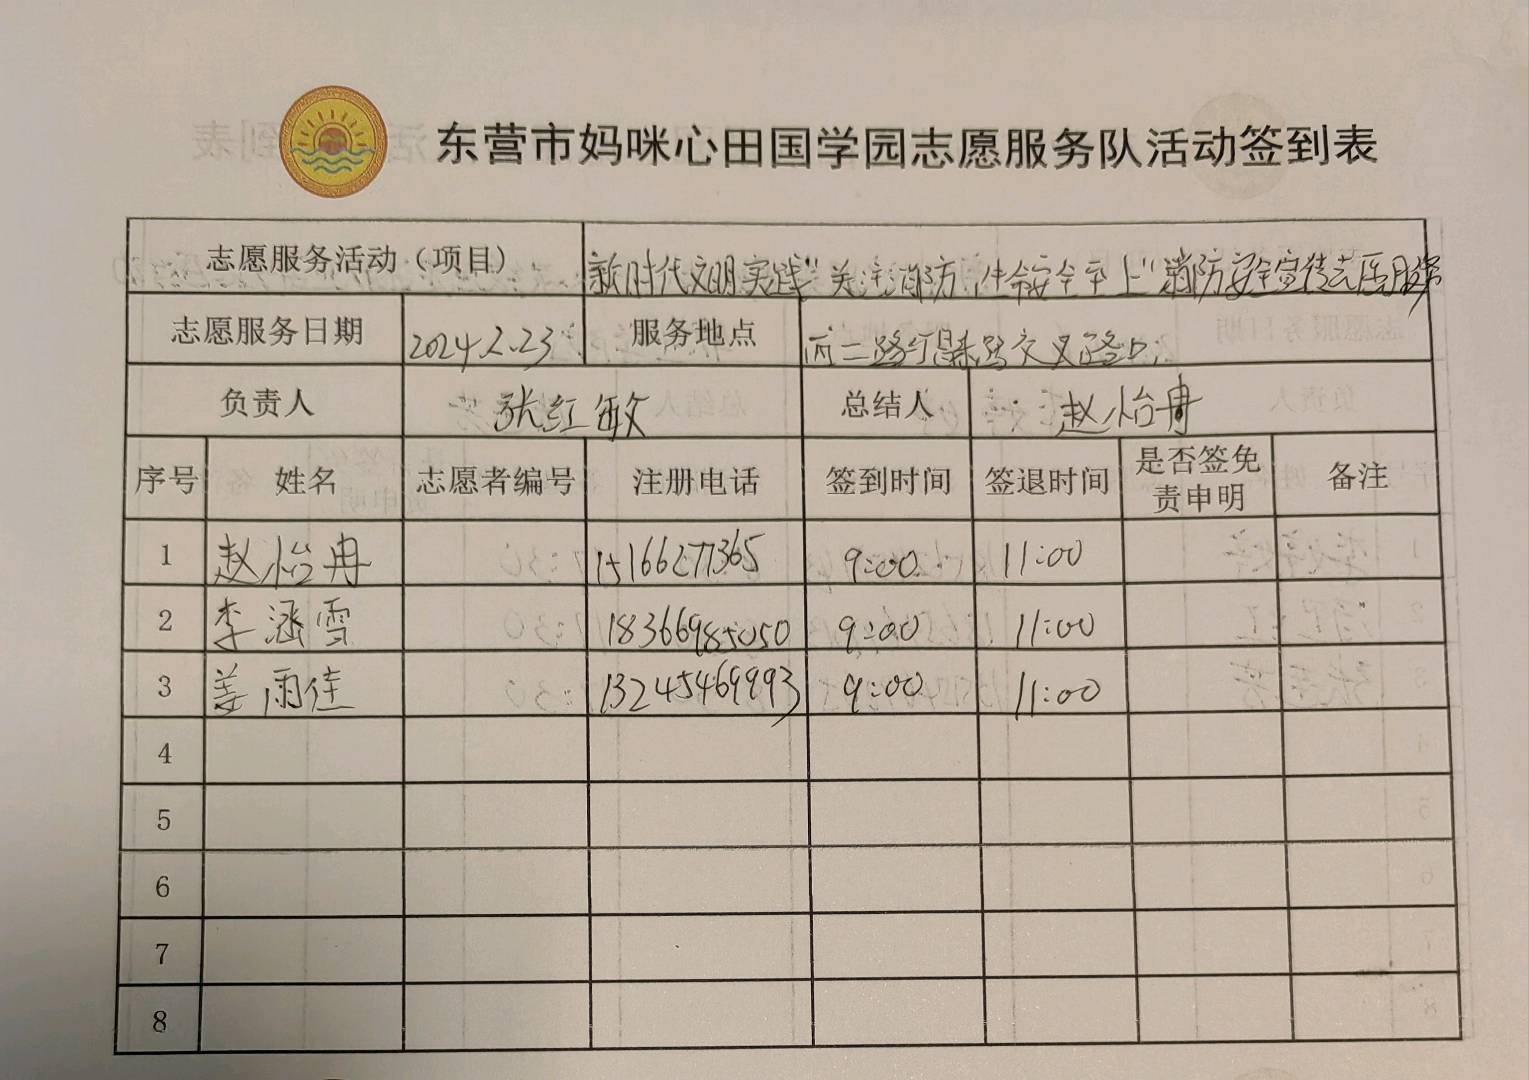 东营市妈咪心田国学园志愿服务队活动签到表
志愿服务活动（项目） 新时代文明实践“关注消防,生命安全至上”消防安全宣传志愿服务
志愿服务日期 2024.2.23 服务地点 路交叉路口
负责人 张红敏 总结人 赵怡冉
序号 姓名 志愿者编号 注册电话 签到时间 签退时间 是否签免责申明 备注
1 赵怡冉 15166277365 9:00 11:00
2 李涵雪 18366985050 9:00 11:00
3 姜雨佳 13245469993 9:00 11:00
4
5
6
7
8